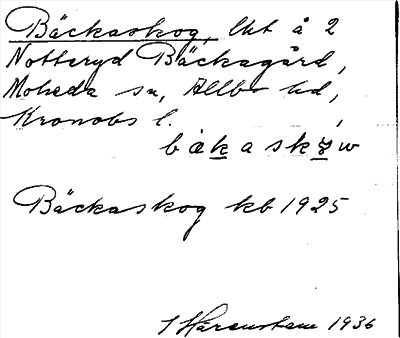 Bäckaskog, lht å 2
Notteryd Bäckagård,
Moheda sn, Allbo hd,
Kronobs l.
Bäckaskog kb 1925
1936